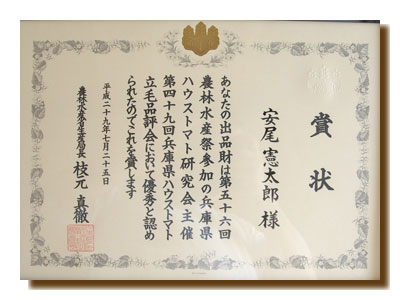 賞状
安尾憲太郎様
あなたの出品財は第五十六回
農林水産祭参加の兵庫県
ハウストマト研究会主催
第四十九回兵庫県ハウストマト
立毛品評会において優秀と認め
られたのでこれを賞します
平成二十九年七月二十五日
農林水産省生産局長 枝元真徹